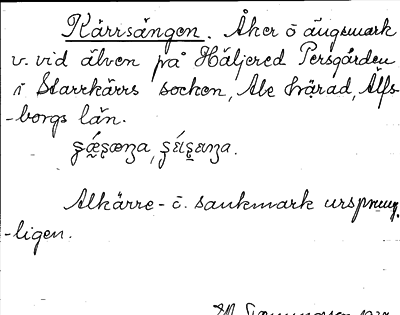 Kärrsängen. Åker o ängsmark
v. vid älven på Häljered Persgården
i Starrkärrs socken, Ale härad, Älfs-
-borgs län.
Alkärre- o. sankmark ursprung-
-ligen.